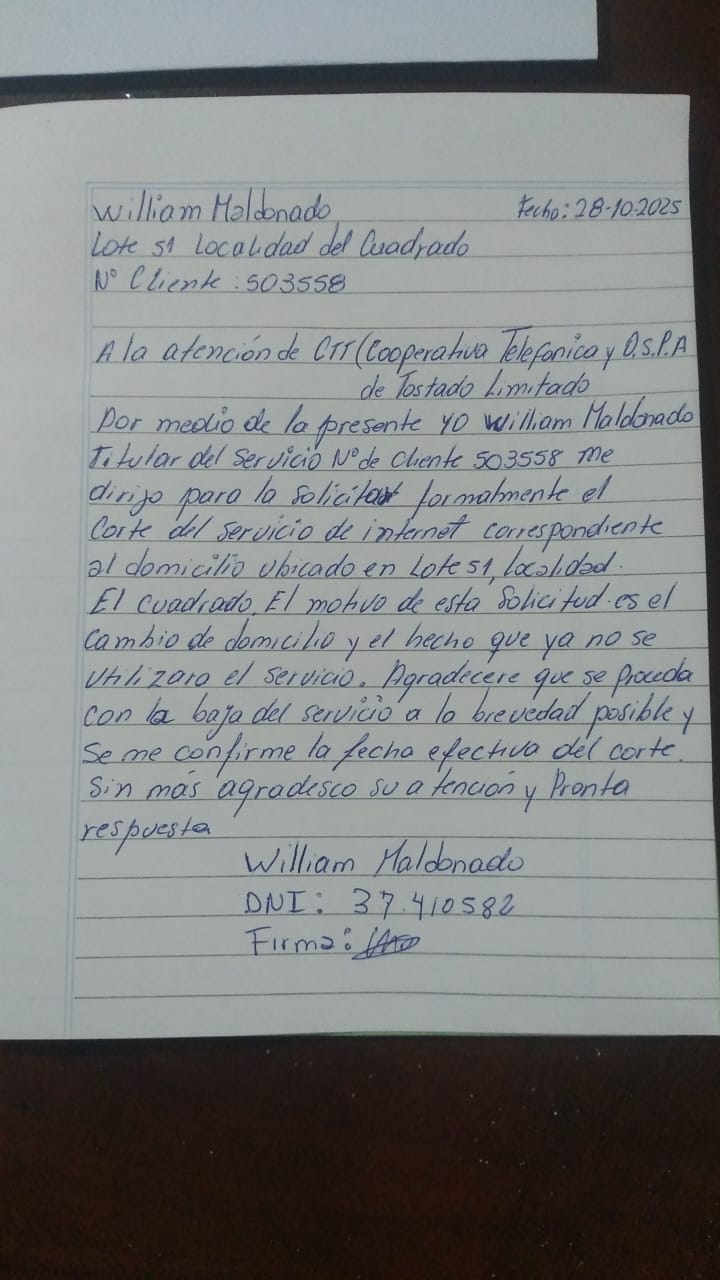 William Maldonado Fecha: 28-10-2025
Lote 51 Localidad del Cuadrado
N° Cliente : 503558
A la atención de CTT (Cooperativa Telefonica y O.S.P.A
de Tostado Limitado
Por medio de la presente yo William Maldonado
Titular del servicio N° de cliente 503558 me
dirijo para la solicitar formalmente el
Corte del servicio de internet correspondiente
al domicilio ubicado en Lote 51, localidad.
El cuadrado. El motivo de esta solicitud es el
Cambio de domicilio y el hecho que ya no se
utilizara el servicio. Agradecere que se proceda
con la baja del servicio a la brevedad posible y
Se me confirme la fecha efectiva del corte.
Sin más agradesco su atención y Pronta
respuesta
William Maldonado
DNI: 37.410582
Firma: